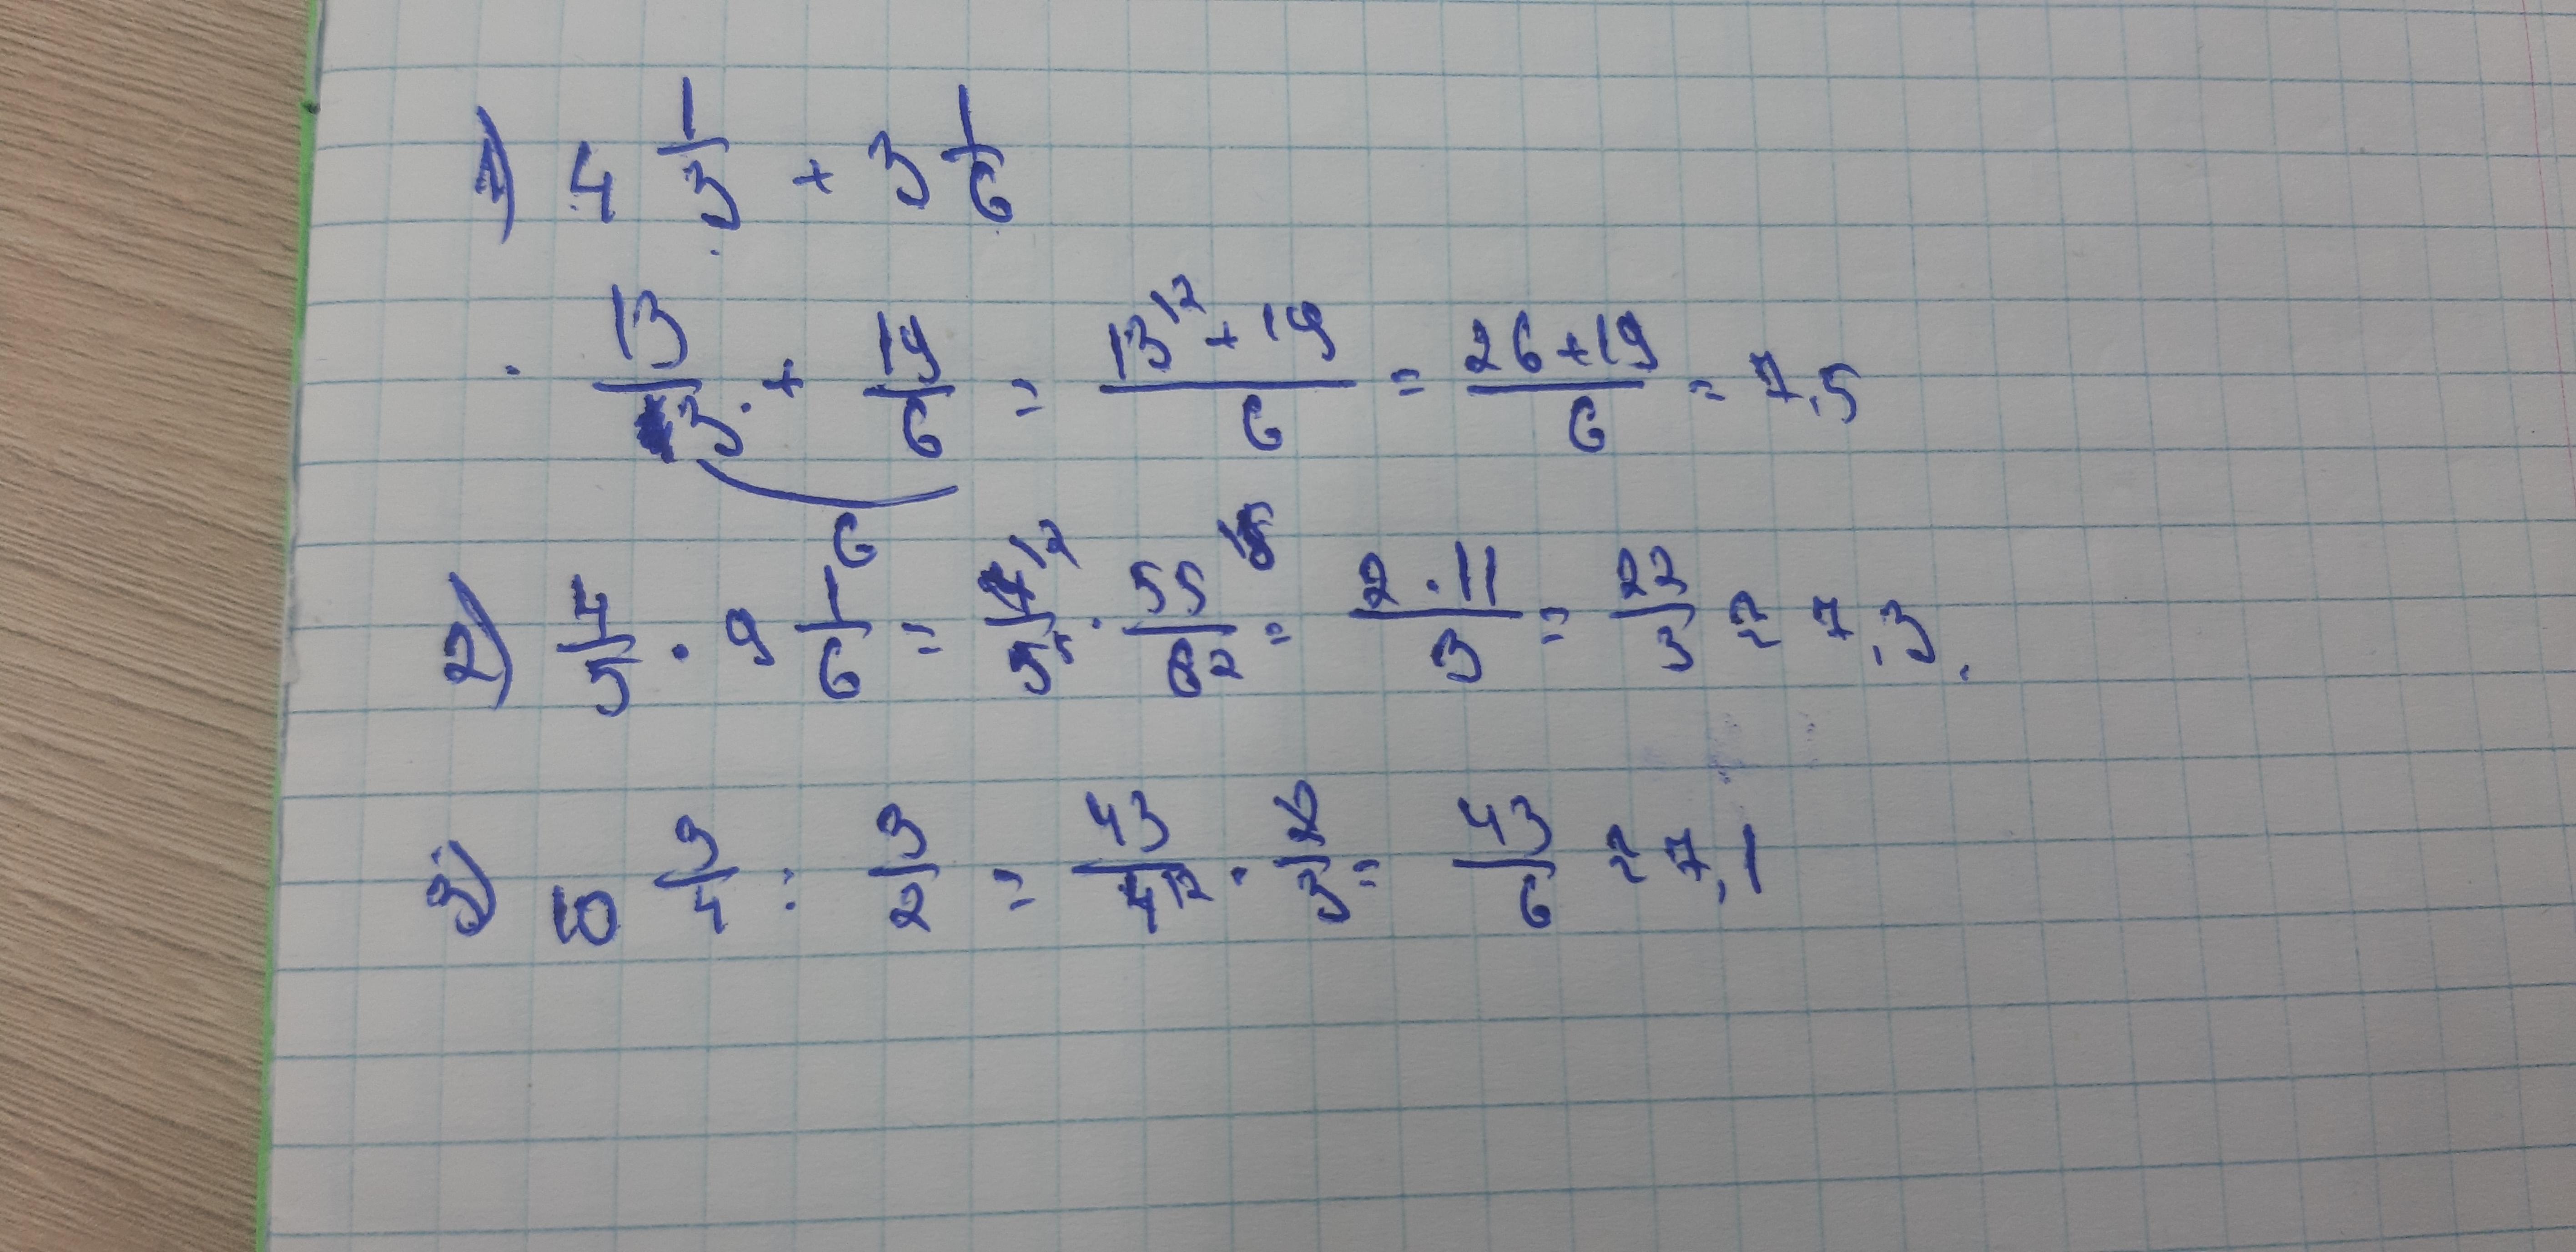 1) 4 1/3 + 3 1/6
13/3 + 19/6 = 13^12 + 19 / 6 = 26+19 / 6 = 7,5
6
2) 4/5 · 9 1/6 = 4^12/5 · 55/6 = 2 · 11 / 3 = 22/3 ≈ 7,3
3) 10 3/4 : 3/2 = 43/4^12 · 2/3 = 43/6 ≈ 7,1